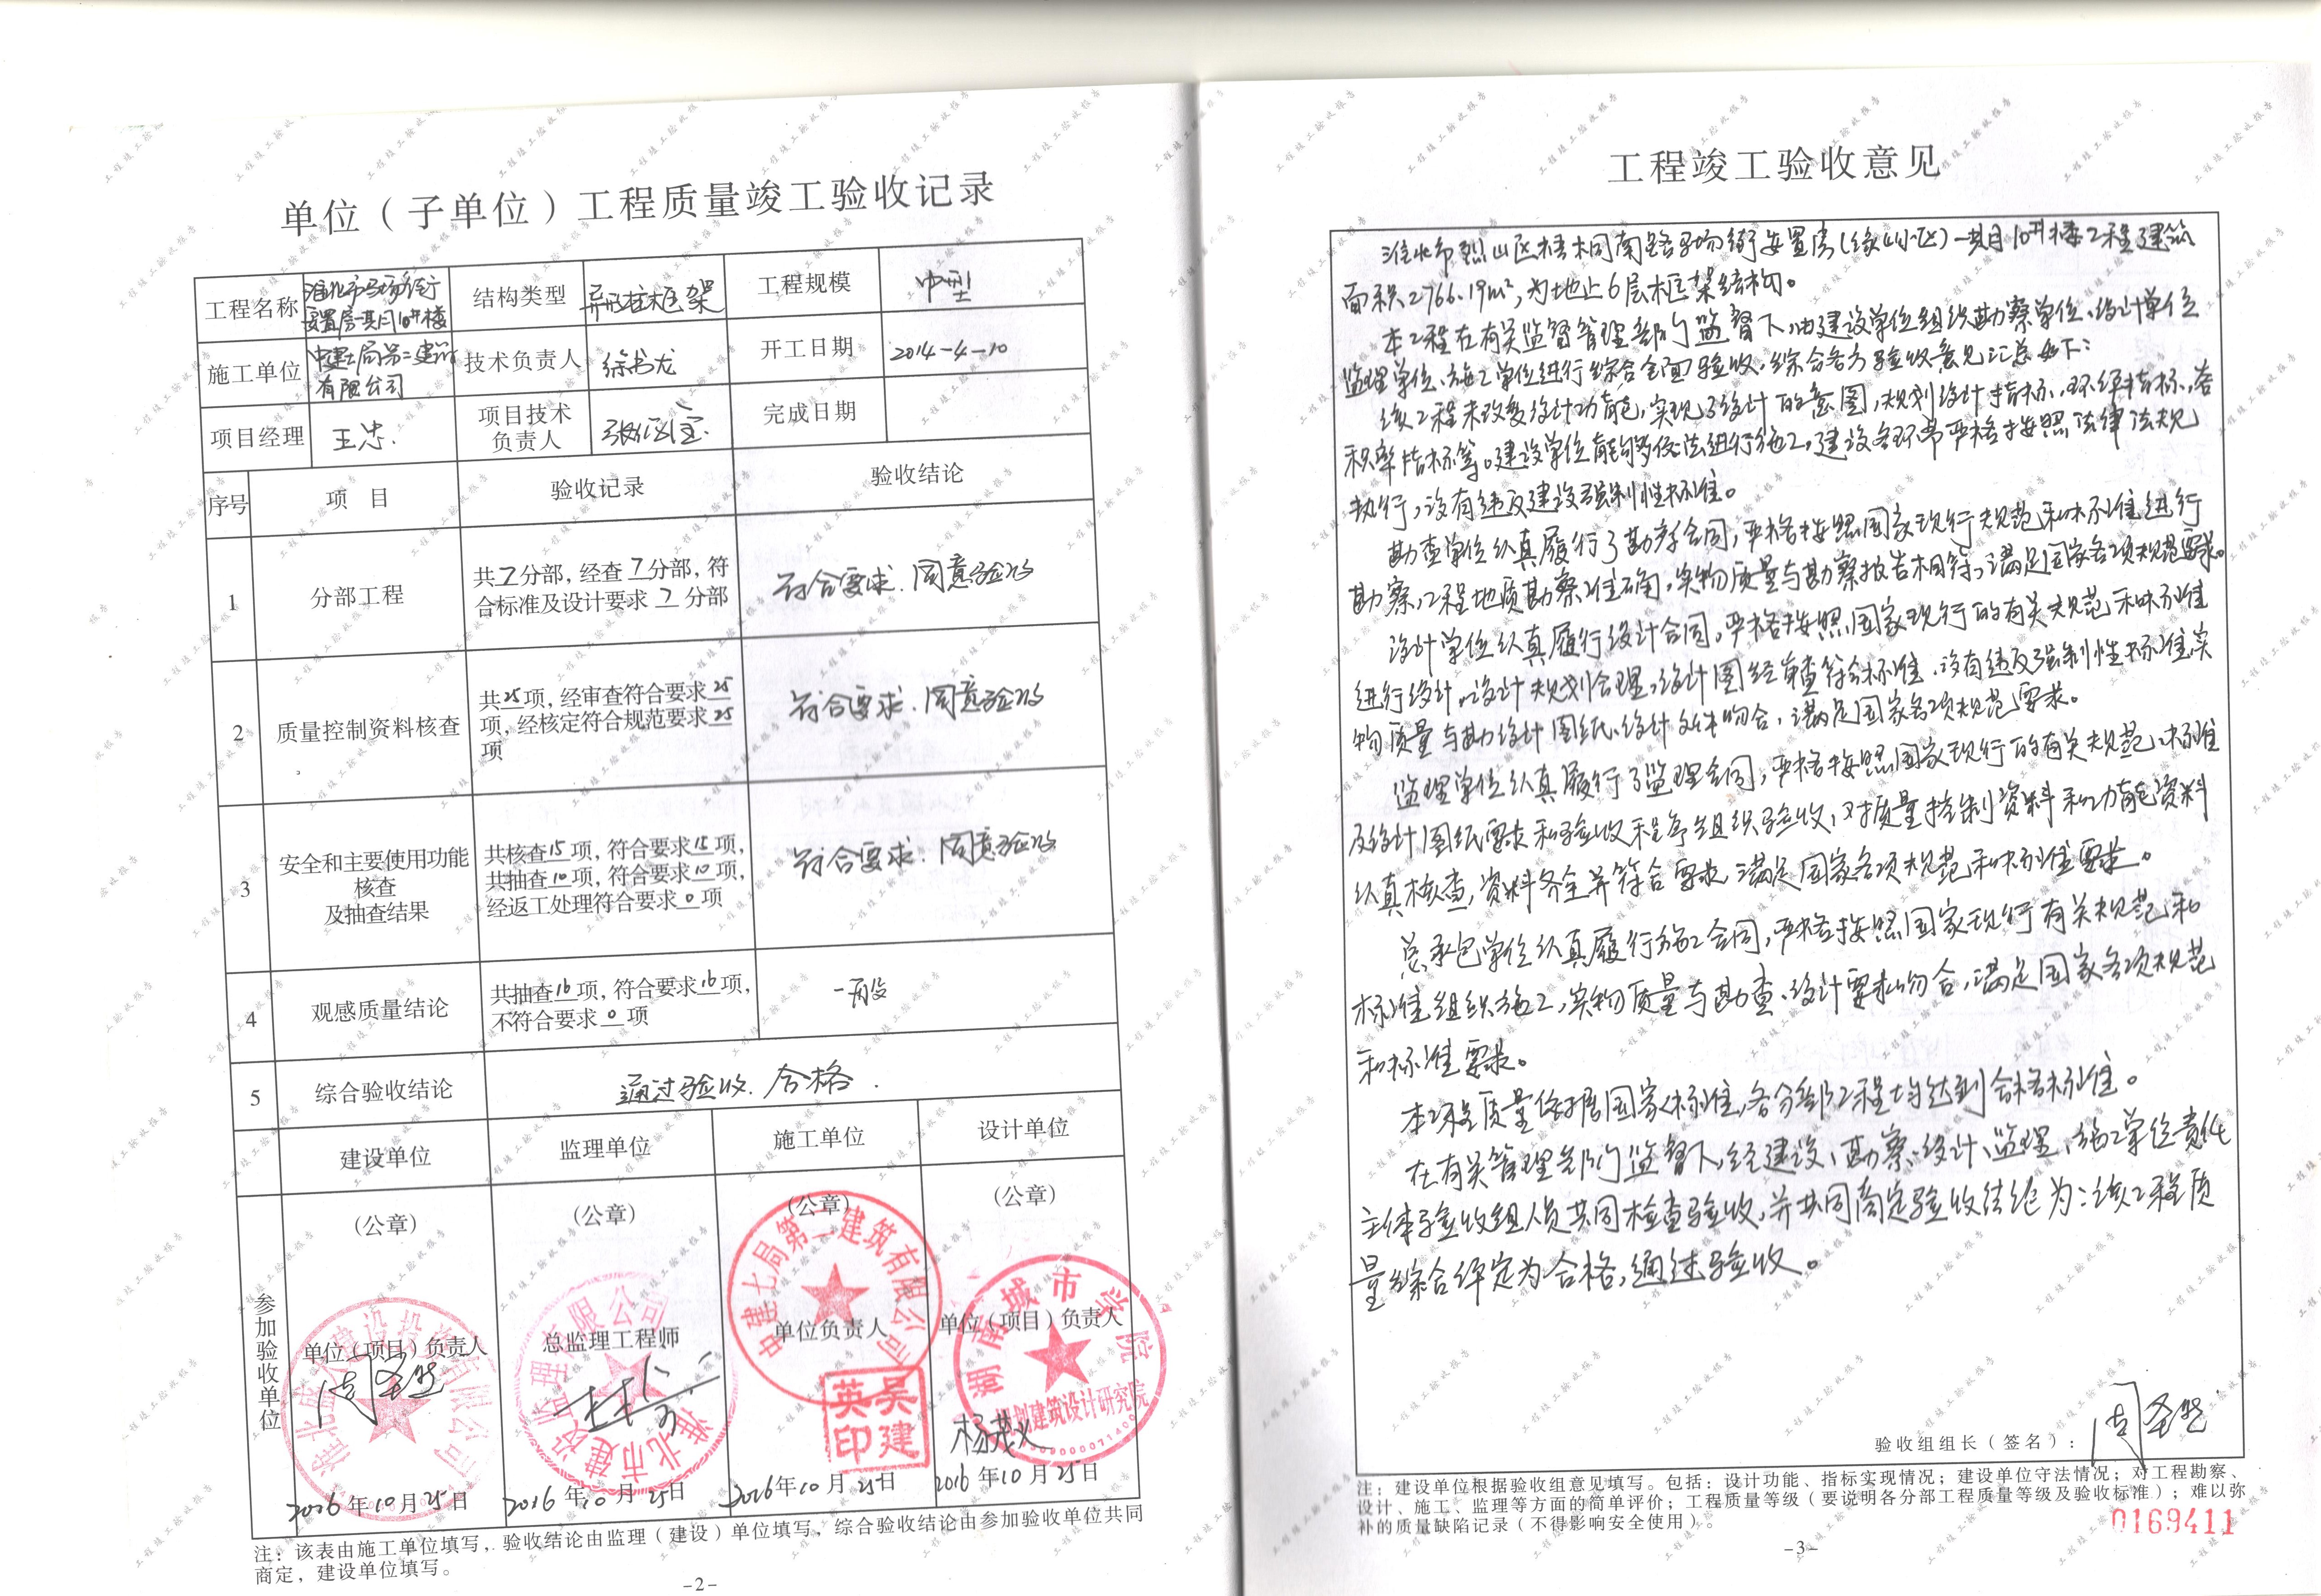 单位（子单位）工程质量竣工验收记录
工程名称
淮北市马场街
安置房一期10#楼
结构类型
异形柱框架
工程规模
中型
施工单位
中建七局第二建筑
有限公司
技术负责人
徐书龙
开工日期
2014-4-10
项目经理
王忠.
项目技术
负责人
完成日期
序号
项 目
验收记录
验收结论
1
分部工程
共7分部, 经查7分部, 符
合标准及设计要求7分部
符合要求.同意验收
2
质量控制资料核查
共25项, 经审查符合要求25
项, 经核定符合规范要求25
项
符合要求.同意验收
3
安全和主要使用功能
核查
及抽查结果
共核查15项, 符合要求15项,
共抽查10项, 符合要求10项,
经返工处理符合要求0项
符合要求.同意验收
4
观感质量结论
共抽查16项, 符合要求16项,
不符合要求0项
一般
5
综合验收结论
通过验收.合格.
参加验收单位
建设单位
监理单位
施工单位
设计单位
（公章）
（公章）
（公章）
（公章）
单位（项目）负责人
总监理工程师
单位负责人
单位（项目）负责人
中建七局第二建筑有限公司
吴建英印
湖南城市学院
规划建筑设计研究院
淮北市建设监理有限公司
杨茂义
2016年10月25日
2016年10月25日
2016年10月25日
2016年10月25日
注：该表由施工单位填写，验收结论由监理（建设）单位填写，综合验收结论由参加验收单位共同
商定，建设单位填写。
-2-
工程竣工验收意见
淮北市烈山区梧桐南路马场街安置房(缘山小区)一期10#楼工程建筑
面积2766.19m²,为地上6层框架结构。
本工程在有关监督管理部门监督下,由建设单位组织勘察单位、设计单位
监理单位、施工单位进行综合全面验收,综合各方验收意见汇总如下:
该工程未改变设计功能,实现了设计的意图,规划设计指标,环保指标,容
积率指标等。建设单位能够依法进行施工,建设各环节严格按照法律法规
执行,没有违反建设强制性标准。
勘查单位认真履行了勘察合同,严格按照国家现行规范和标准进行
勘察,工程地质勘察准确,实物质量与勘察报告相符,满足国家各项规范要求。
设计单位认真履行设计合同,严格按照国家现行的有关规范和标准
进行设计。设计规划合理,设计图经审查符合标准,没有违反强制性标准,实
物质量与勘设计图纸、设计文件吻合,满足国家各项规范要求。
监理单位认真履行了监理合同,严格按照国家现行的有关规范、标准
及设计图纸要求和验收程序组织验收,对质量控制资料和功能资料
认真核查,资料齐全并符合要求,满足国家各项规范和标准要求。
总承包单位认真履行施工合同,严格按照国家现行有关规范和
标准组织施工,实物质量与勘查、设计要求吻合,满足国家各项规范
和标准要求。
本工程质量依据国家标准,各分部工程均达到合格标准。
在有关管理部门监督下,经建设、勘察、设计、监理、施工单位责任
主体验收组人员共同检查验收,并共同商定验收结论为:该工程质
量综合评定为合格,通过验收。
验收组组长（签名）：
注：建设单位根据验收组意见填写。包括：设计功能、指标实现情况；建设单位守法情况；对工程勘察、
设计、施工、监理等方面的简单评价；工程质量等级（要说明各分部工程质量等级及验收标准）；难以弥
补的质量缺陷记录（不得影响安全使用）。
0169411
-3-